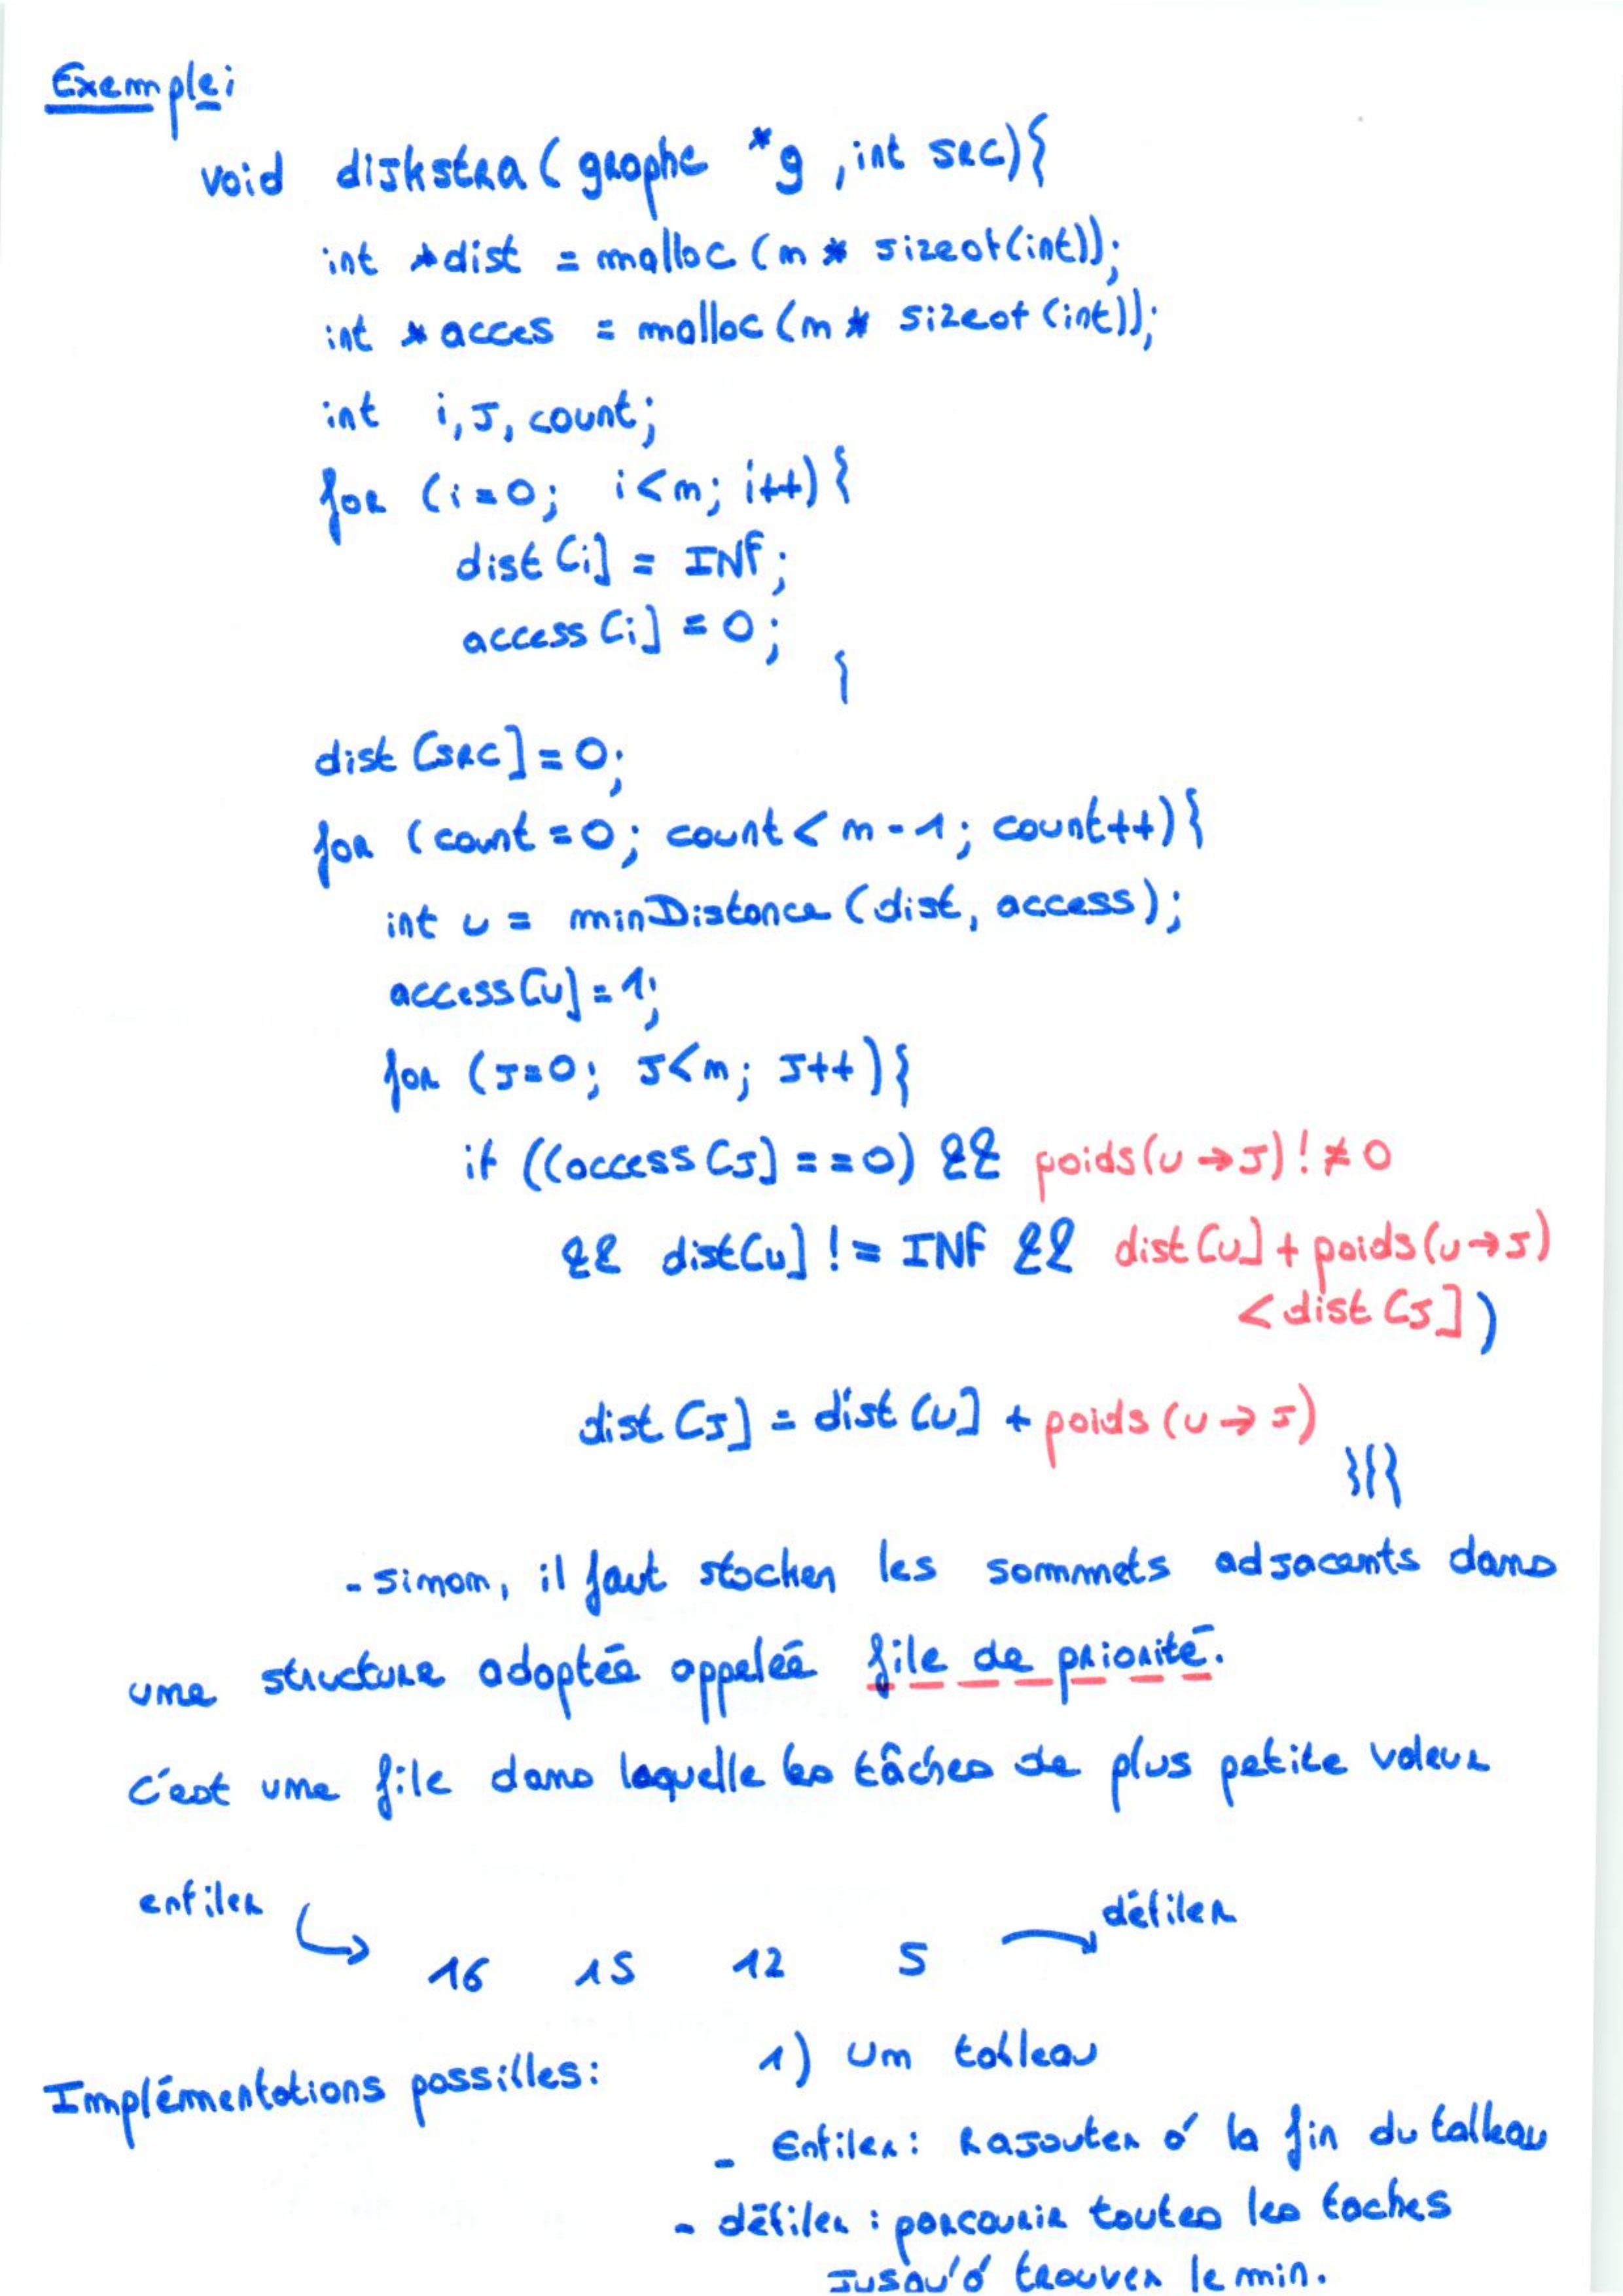 Exemple:
void dijkstra ( graphe *g , int src) {
int *dist = malloc (n * sizeof(int));
int * acces = malloc (n * sizeof (int));
int i, J, count;
for (i=0; i<n; i++) {
dist [i] = INF;
access [i] = 0;
}
dist [src] = 0;
for (count = 0; count < n - 1; count++) {
int u = minDistance (dist, access);
access [u] = 1;
for (J=0; J<n; J++) {
if ((access [J] == 0) && poids (u → J) ! ≠ 0
&& dist [u] != INF && dist [u] + poids (u → J)
< dist [J] )
dist [J] = dist [u] + poids (u → J)
}}}
- sinon, il faut stocker les sommmets adjacents dans
une structure adoptée appeleé file de priorité.
c'est une file dans laquelle les tâches de plus petite valeur
enfiler
défiler
16 15 12 5
Implémentations possibles:
1) Un tableau
- Enfiler : Rajouter à la fin du tableau
- défiler : parcourir toutes les taches
jusqu'à trouver le min.